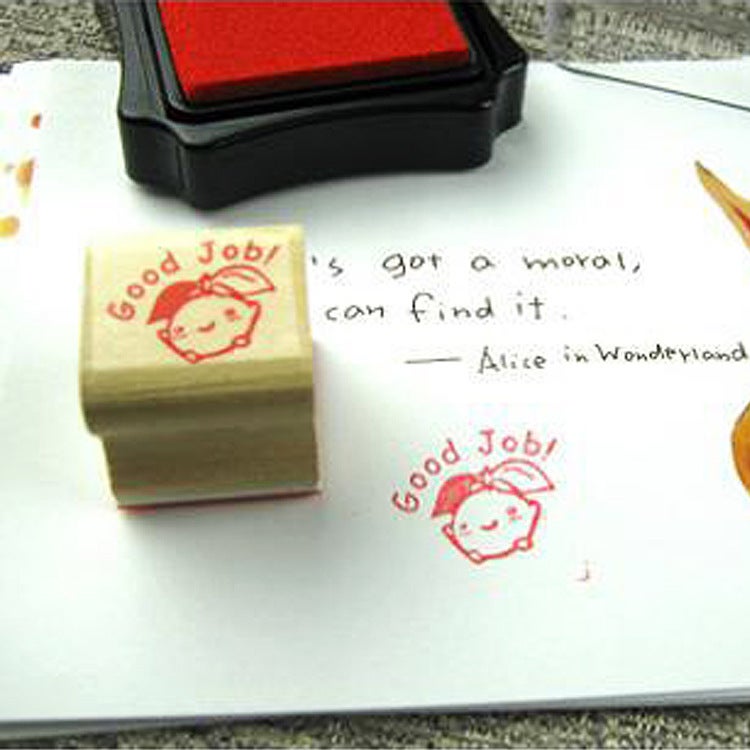 Good Job!
's got a moral,
can find it.
— Alice in Wonderland
Good Job!